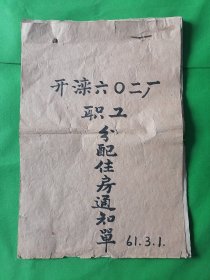 开滦六〇二厂
职工
分配住房通知單
61.3.1.